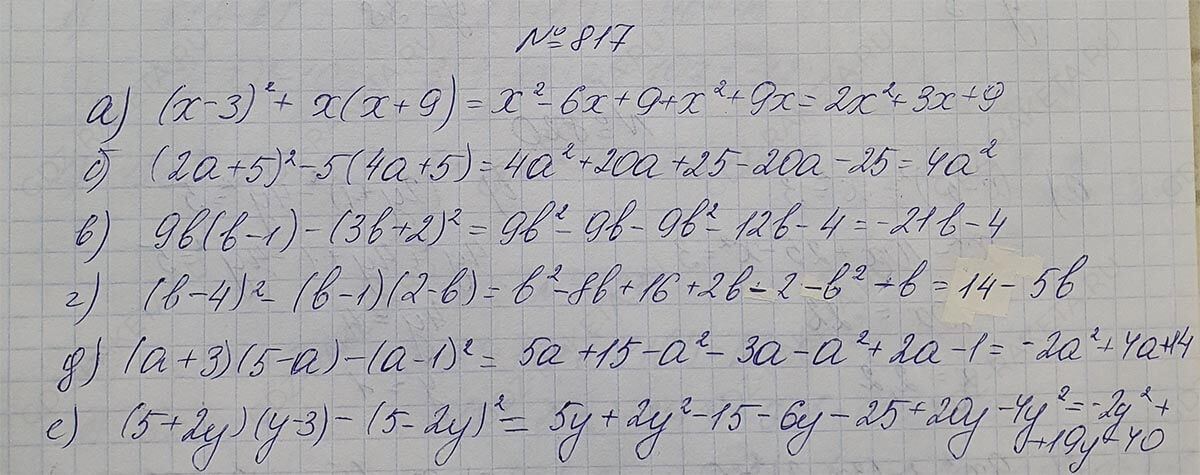 №817
а) (x-3)²+ x(x+9)=x²-6x+9+x²+9x=2x²+3x+9
б) (2a+5)²-5(4a+5)=4a²+20a+25-20a-25=4a²
в) 9b(b-1)-(3b+2)²=9b²-9b-9b²-12b-4=-21b-4
г) (b-4)²-(b-1)(2-b)=b²-8b+16+2b-2-b²+b=14-5b
д) (a+3)(5-a)-(a-1)²=5a+15-a²-3a-a²+2a-1=-2a²+4a+14
е) (5+2y)(y-3)-(5-2y)²=5y+2y²-15-6y-25+20y-4y²=-2y²+
+19y-40